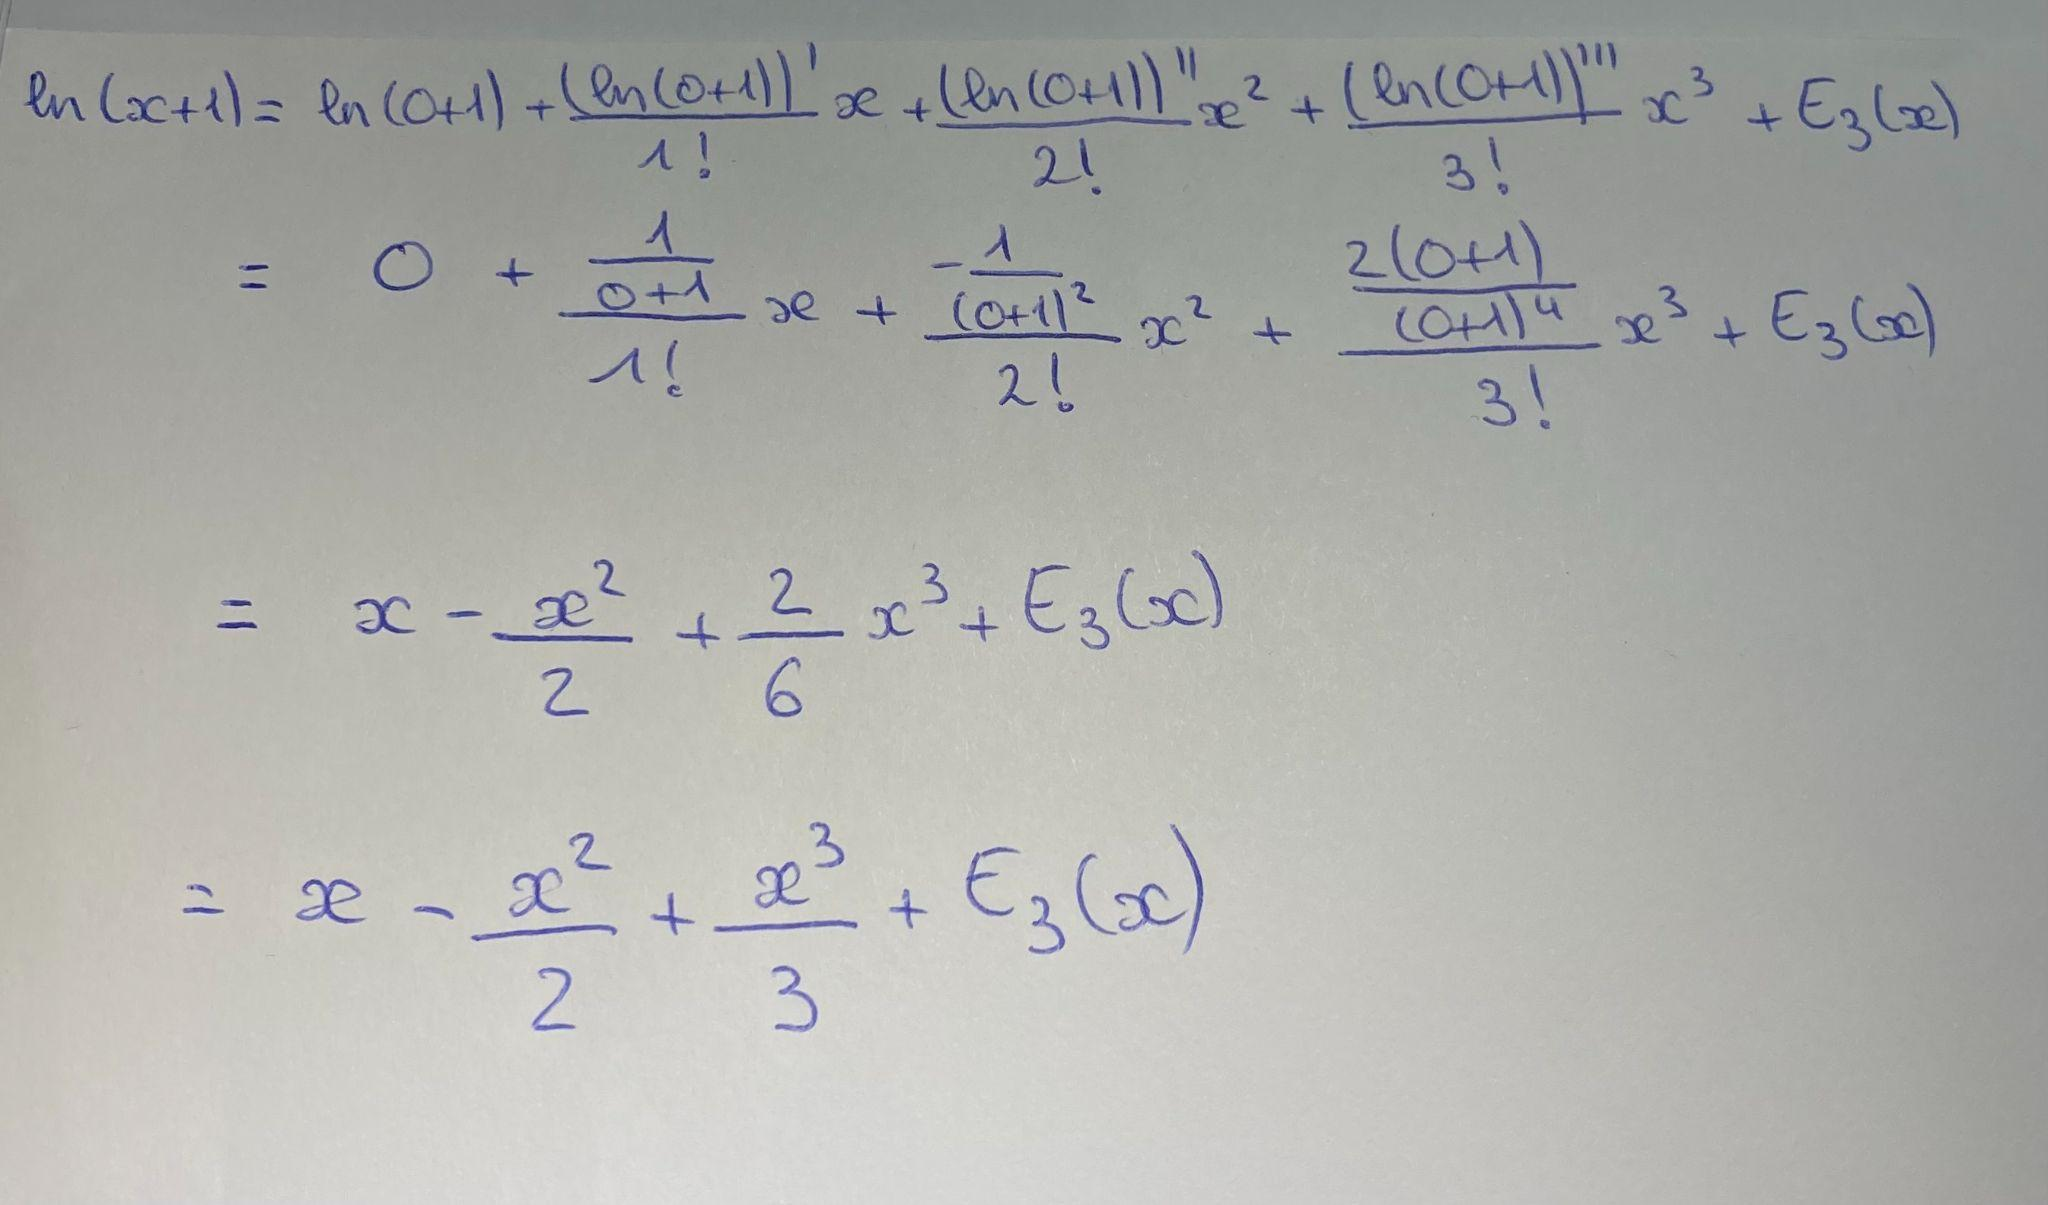 ln(x+1) = ln(0+1) + \frac{(ln(0+1))'}{1!} x + \frac{(ln(0+1))''}{2!} x^2 + \frac{(ln(0+1))'''}{3!} x^3 + E_3(x)
= 0 + \frac{\frac{1}{0+1}}{1!} x + \frac{-\frac{1}{(0+1)^2}}{2!} x^2 + \frac{\frac{2(0+1)}{(0+1)^4}}{3!} x^3 + E_3(x)
= x - \frac{x^2}{2} + \frac{2}{6} x^3 + E_3(x)
= x - \frac{x^2}{2} + \frac{x^3}{3} + E_3(x)